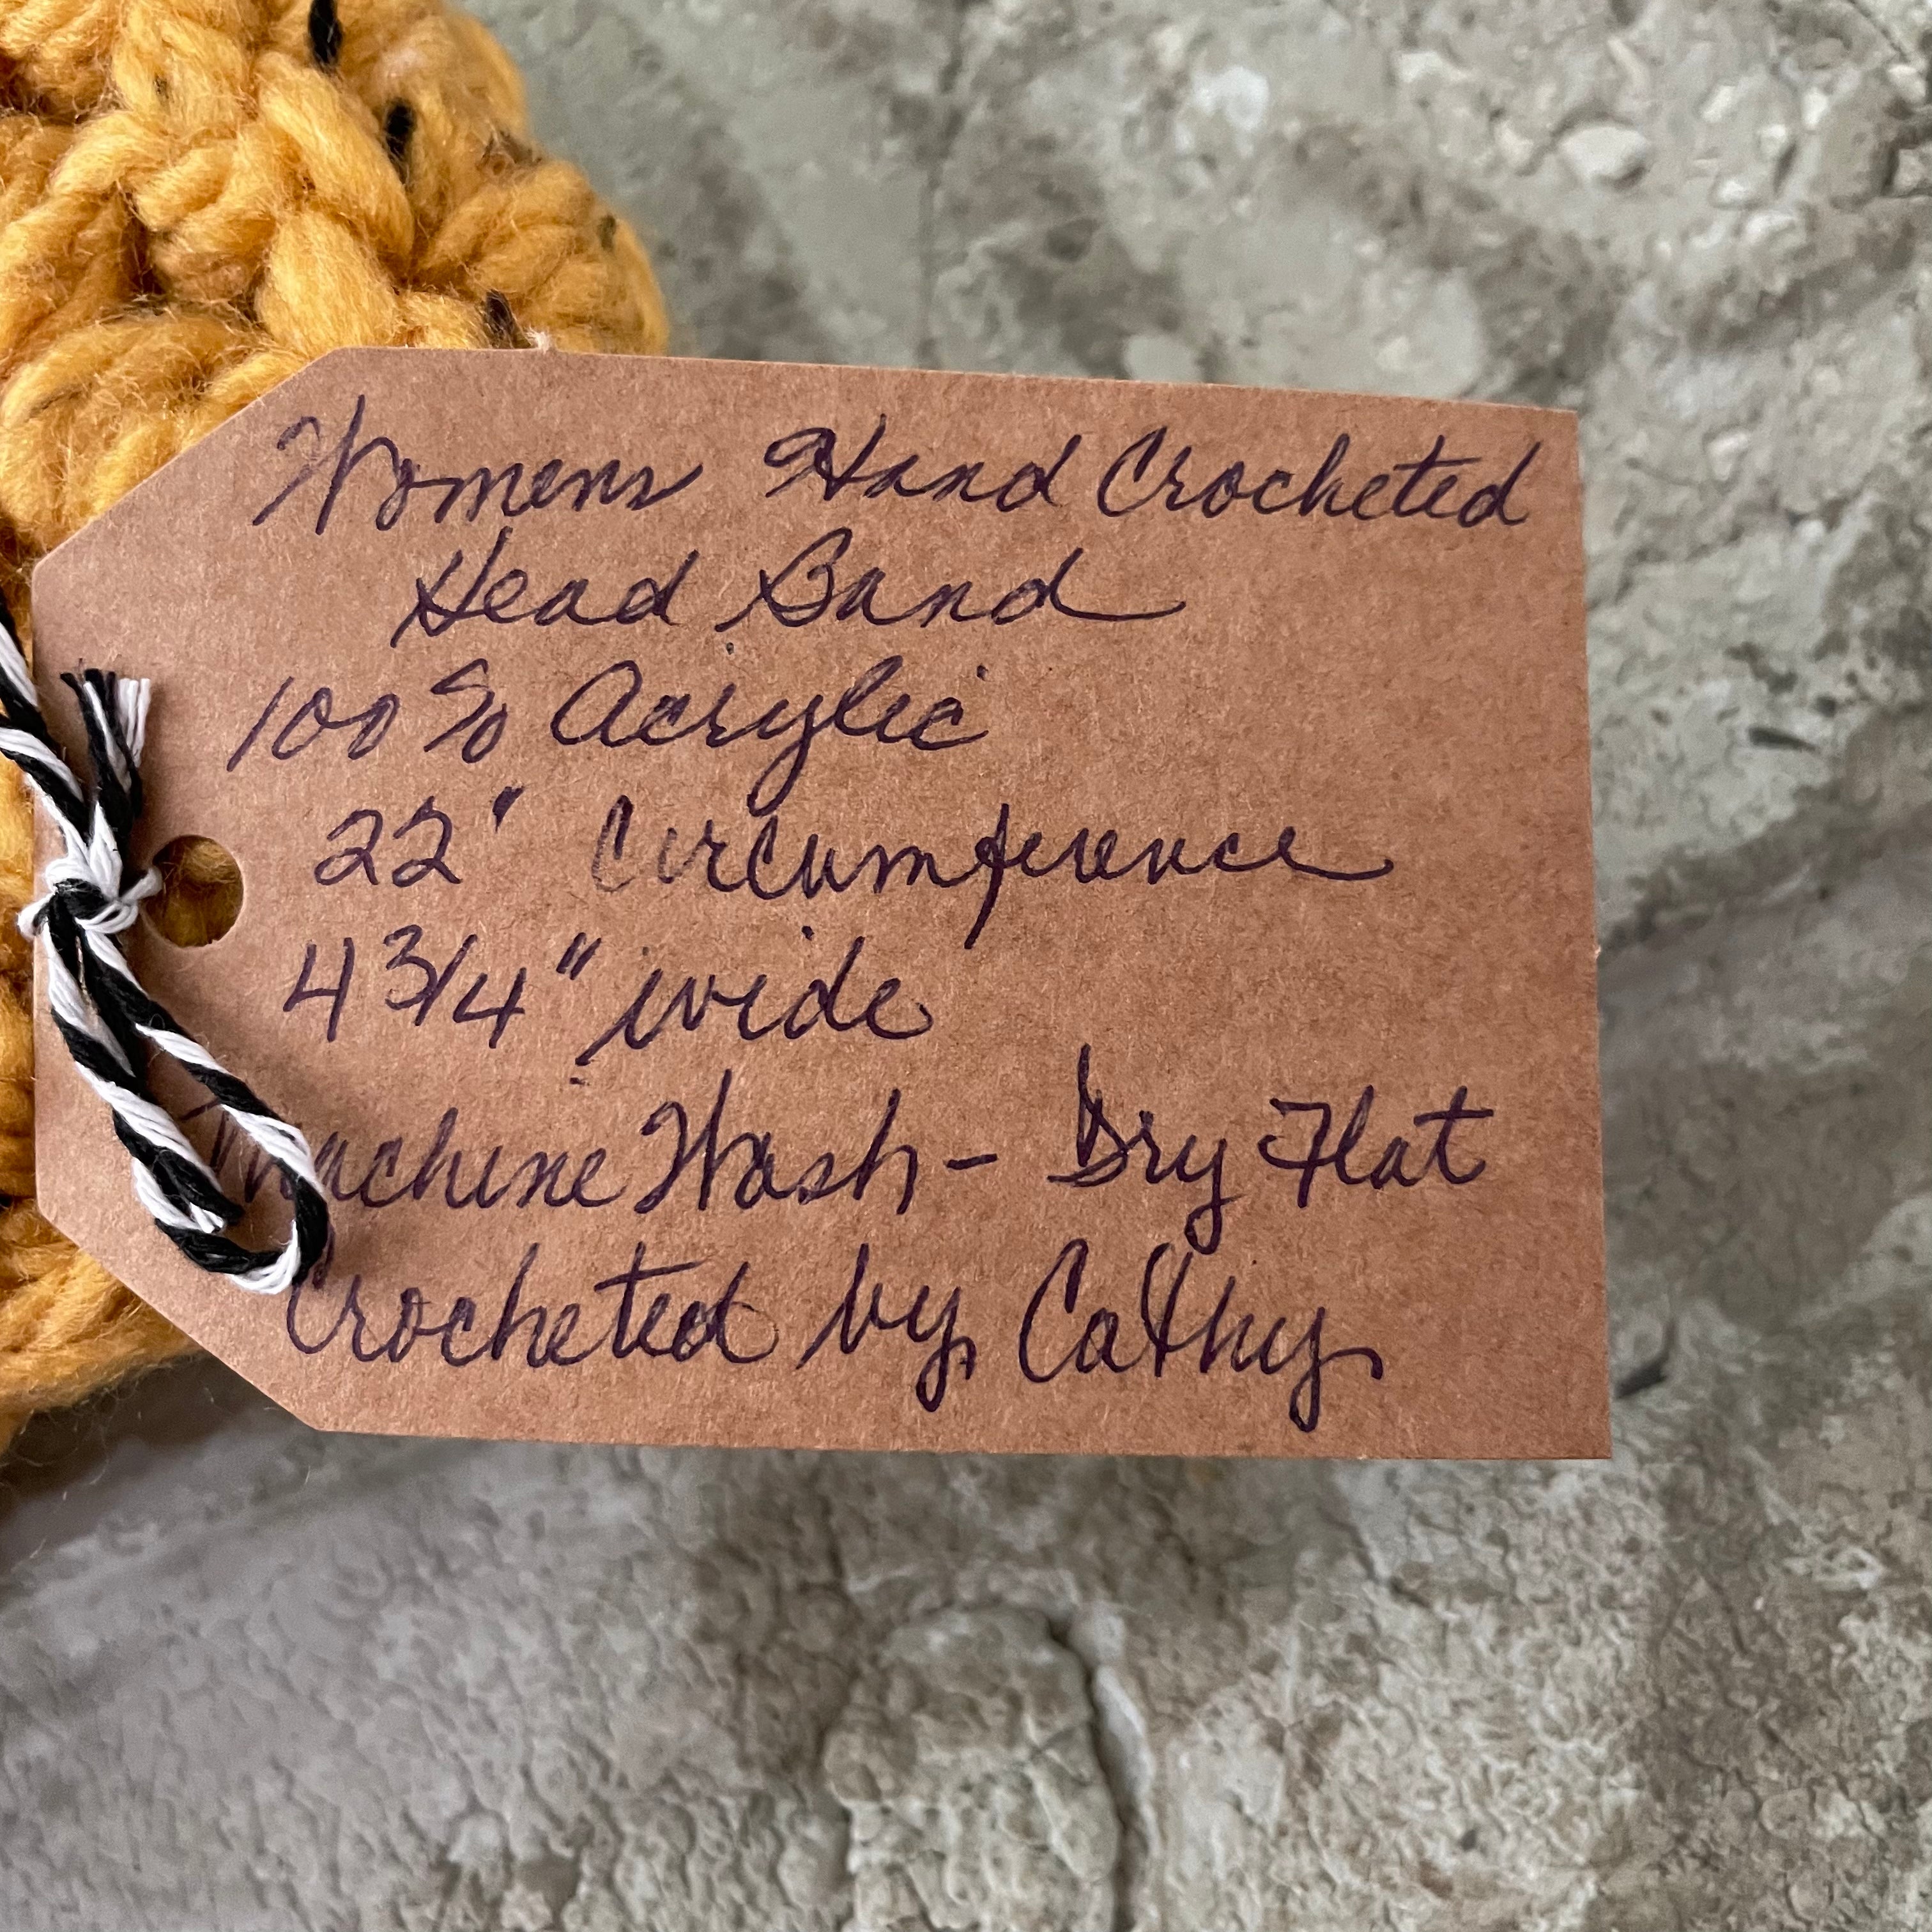 Womens Hand Crocheted
Head Band
100% Acrylic
22" Circumference
4 3/4" wide
Machine Wash - Dry Flat
Crocheted by Cathy